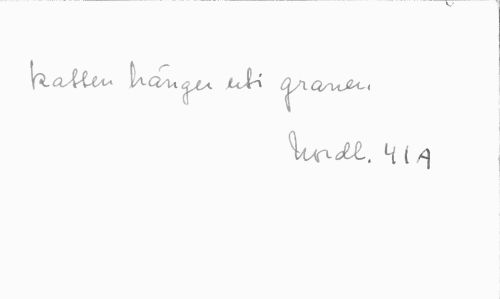 katten hänger uti granen.
Nordl. 41A